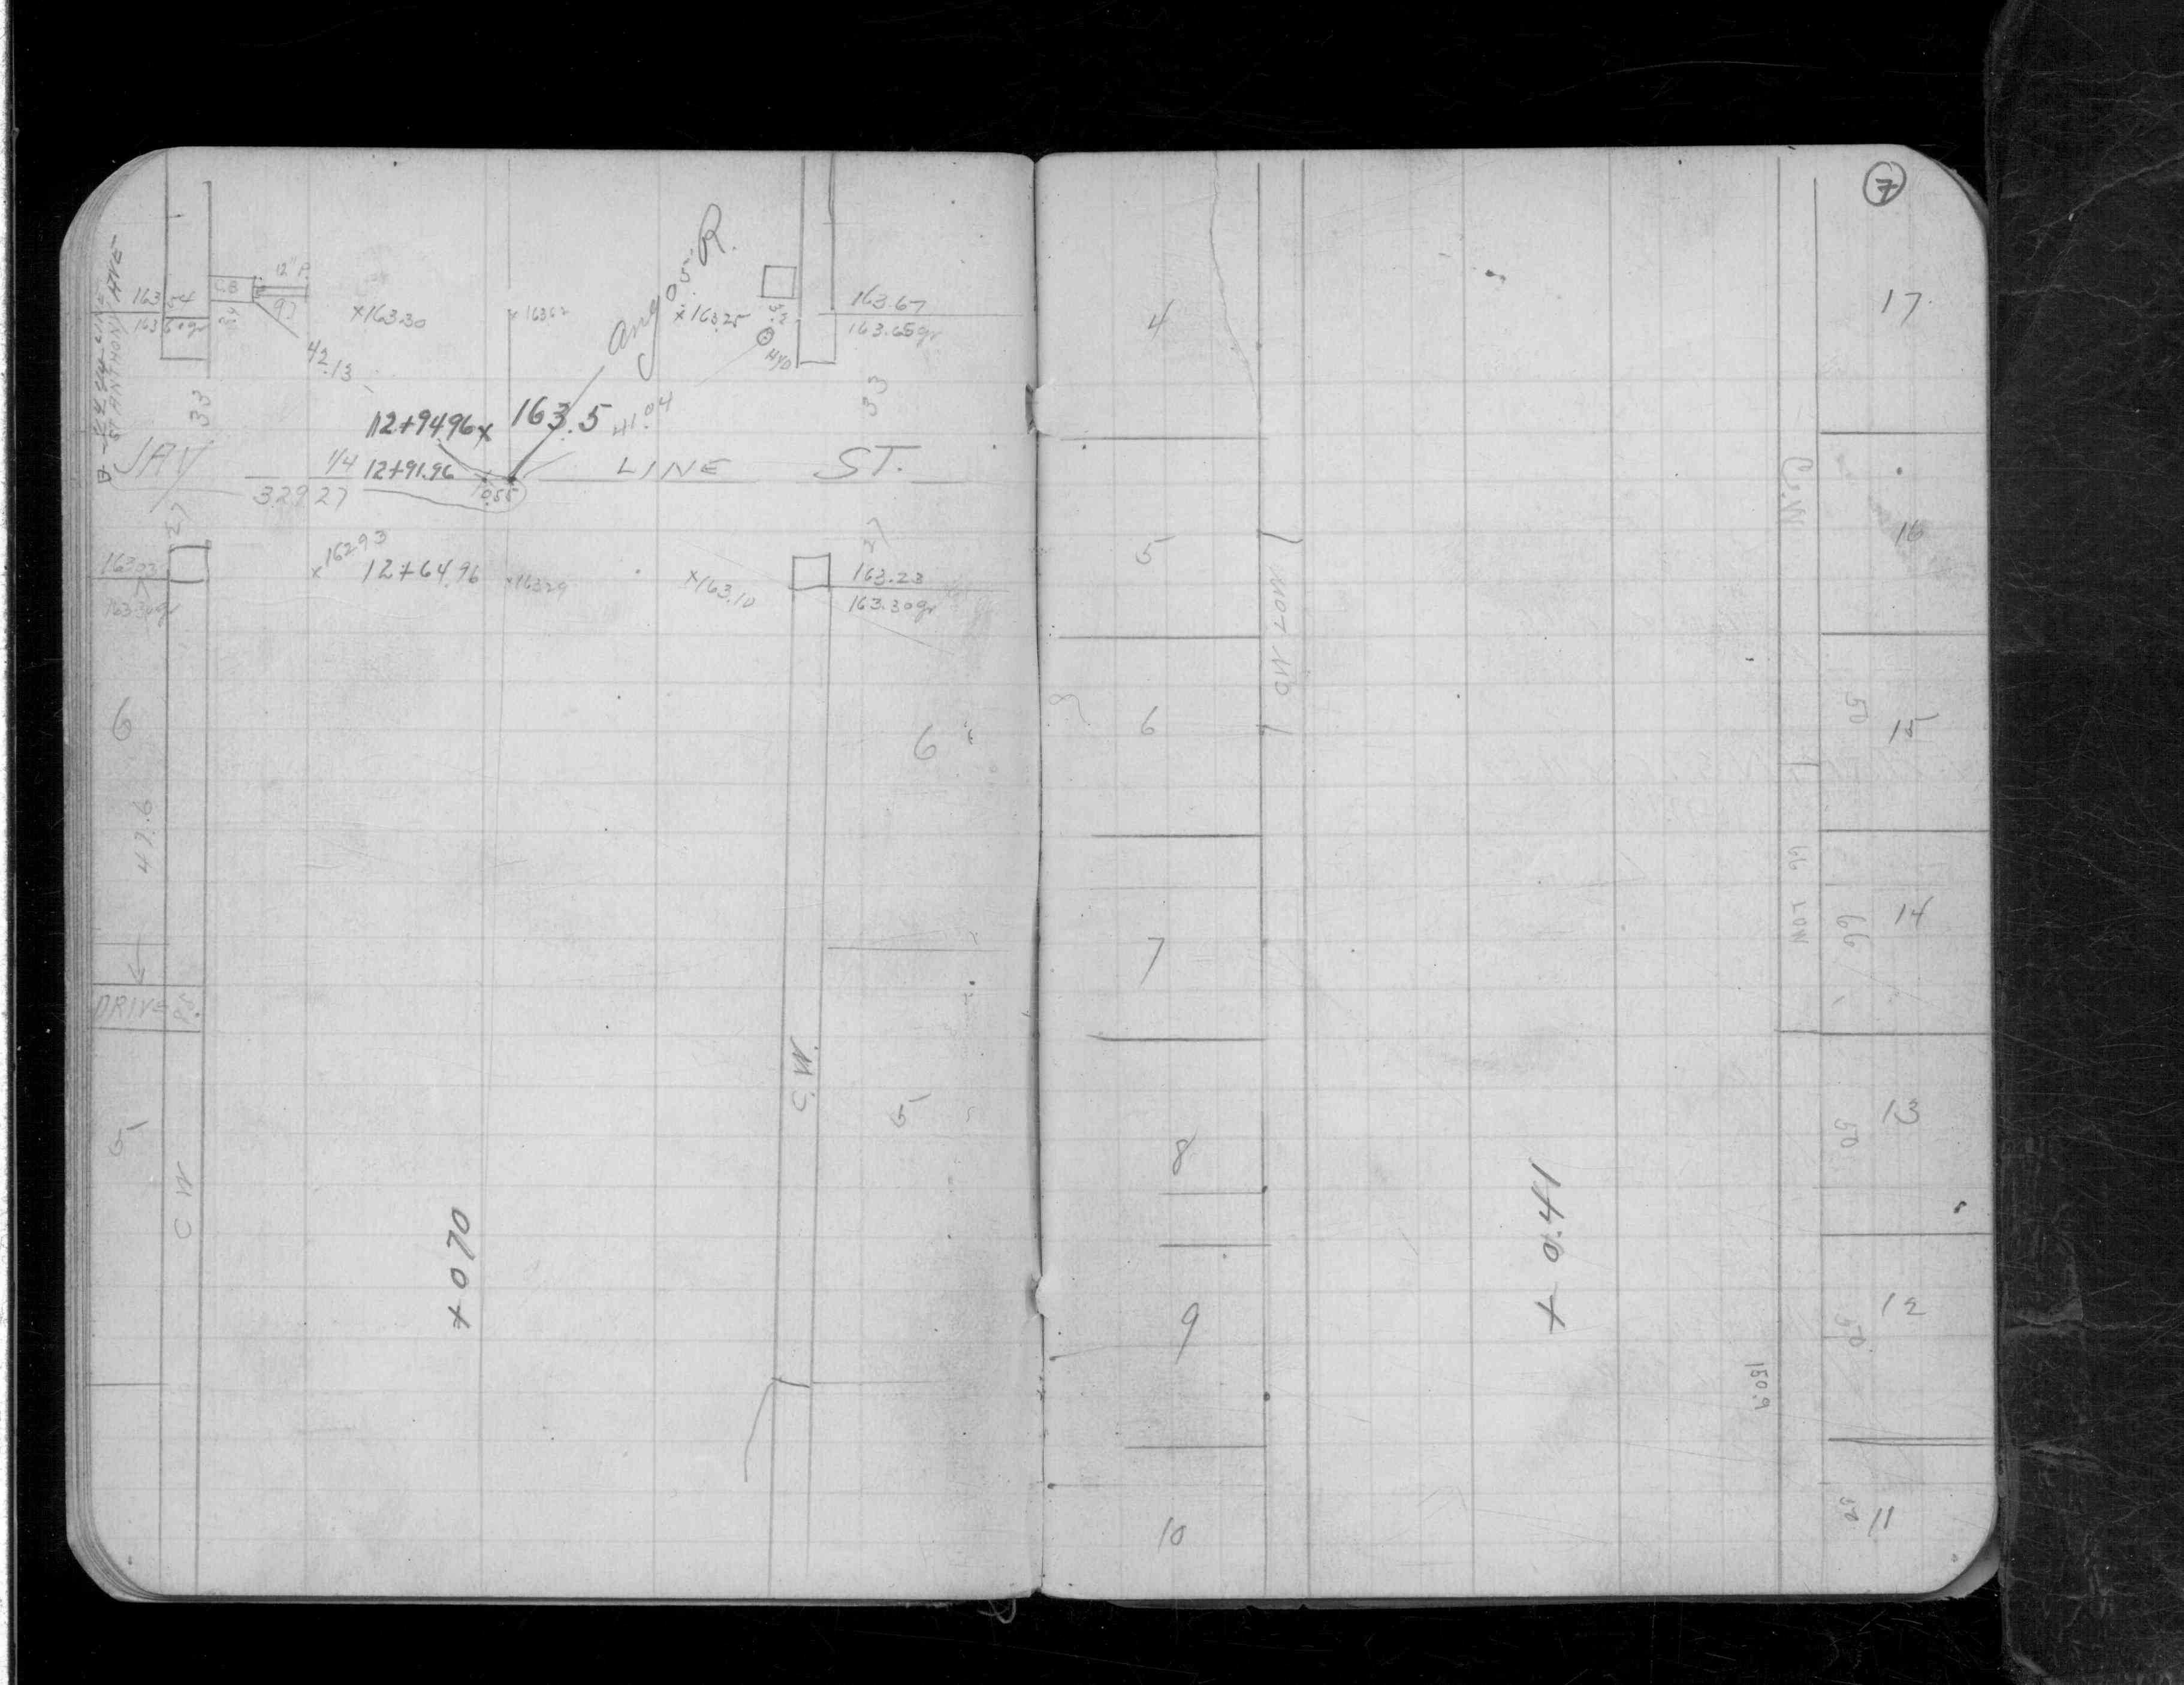 ST ANTHONY AVE
163.54
163.60gr
CB
12" P.
97
42.13
×163.30
×163.62
ang 0.5' R.
×163.25
HYD
163.67
163.65gr
33
33
12+94.96×
163.5
41.04
JAY
1/4
12+91.96
LINE
ST.
329.27
0.55
27
27
163.03
163.30gr
×162.93
12+64.96
×163.29
×163.10
163.23
163.30gr
6
6
47.6
DRIVE
5
5
C.W.
C W
+070
7
4
17
C.W.
5
16
NOT WD
6
50
15
66
NOT
66
14
7
8
13
50
+0.41
9
12
50
150.9
10
50
11